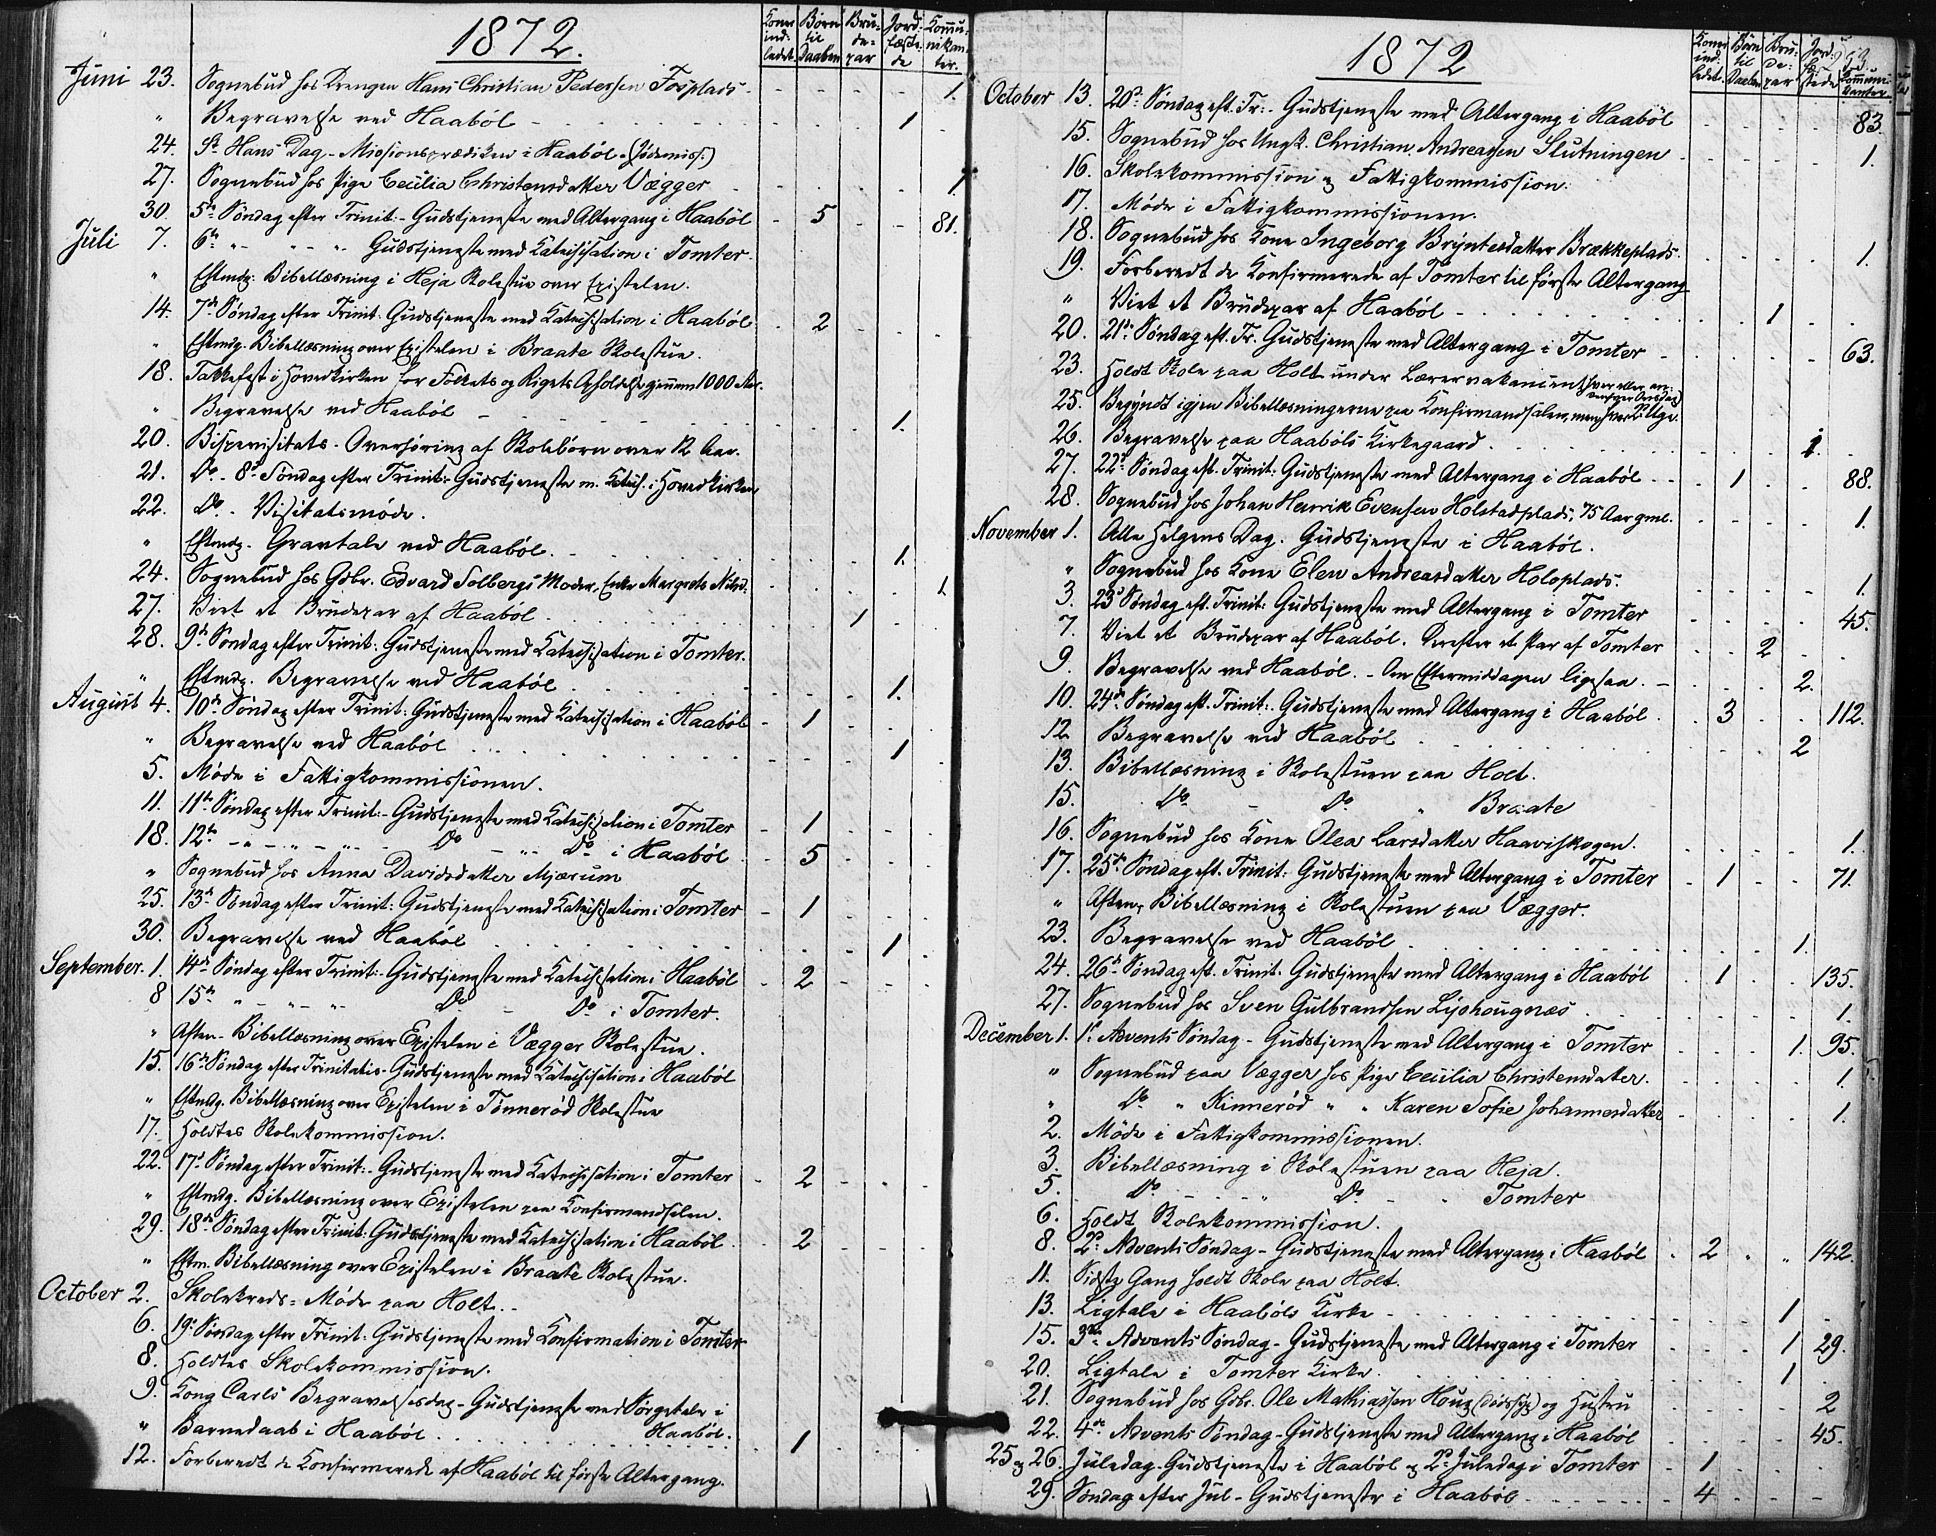 1872.
Koner indledet. Børn til Daaben Brudepar Jordfæstede Kommunikanter.
Juni 23. Sognebud hos Drengen Hans Christian Pedersen Fosplads - - - - 1.
" Begravelse ved Haabøl - - - 1 -
24. St. Hans Dag - Missionsprædiken i Haabøl. (Jødemiss.)
27. Sognebud hos Pige Cecilia Christensdatter Vegger - - - - 1.
30. 5te Søndag efter Trinit: - Gudstjeneste med Altergang i Haabøl - 5 - - 81.
Juli 7. 6te " - " - " - Gudstjeneste med Katechisation i Tomter.
" Eftmdg. Bibellæsning i Heja Skolestue over Epistelen.
14. 7de Søndag efter Trinit: Gudstjeneste med Katechisation i Haabøl - 2 - - -
" Eftmdg. Bibellæsning over Epistelen i Braate Skolestue.
18. Takkefest i Hovedkirken for Folkets og Rigets Opholdelse gjennem 1000 Aar.
" Begravelse ved Haabøl - - - 1. -
20. Bispevisitats - Overhøring af Skolebørn over 12 Aar.
21. Do. - 8de Søndag efter Trinit: - Gudstjeneste m. Katech. i Hovedkirken
22. Do. - Visitatsmøde.
" Eftmdg. - Gravtale ved Haabøl. - - - 1. -
24. Sognebud hos Gdbr. Edvard Solbergs Moder, Enke Margrete Nilsd: - - - - 1
27. Viet et Brudepar af Haabøl - - 1 - -
28. 9de Søndag efter Trinit: Gudstjeneste med Katechisation i Tomter.
" Eftmdg. Begravelse ved Haabøl - - - 1. -
August 4. 10de Søndag efter Trinit: Gudstjeneste med Katechisation i Haabøl - 1 - - -
" Begravelse ved Haabøl - - - 1 -
5. Møde i Fattigkommissionen.
11. 11te Søndag efter Trinit: - Gudstjeneste med Katechisation i Tomter - 1 - - -
18. 12te - " - " - " - Do - " - Do i Haabøl - 5 - - -
" Sognebud hos Anna Davidsdatter Mjærum
25. 13de Søndag efter Trinit: Gudstjeneste med Katechisation i Tomter - 1 - - -
30. Begravelse ved Haabøl - - - 1. -
September. 1. 14de Søndag efter Trinit: - Gudstjeneste med Katechisation i Haabøl - 2 - - -
8 15de " - " - " Do - Do i Tomter.
" Aften - Bibellæsning over Epistelen i Vægger Skolestue.
15. 16de Søndag efter Trinitatis - Gudstjeneste med Katechisation i Haabøl
" Eftmdg. Bibellæsning over Epistelen i Tønnerød Skolestue
17. Holdtes Skolekommission.
22. 17de Søndag efter Trinit: - Gudstjeneste med Katechisation i Tomter - 2 - - -
" Eftmdg. Bibellæsning over Epistelen paa Konfirmandsalen.
29. 18de Søndag efter Trinit: Gudstjeneste med Katechisation i Haabøl - 2 - - -
" Eftm. Bibellæsning over Epistelen i Braate Skolestue.
October 2. Skolekreds-Møde paa Holt. -
6. 19de Søndag efter Trinit: Gudstjeneste med Konfirmation i Tomter
8. Holdtes Skolekommission.
9. Kong Carls Begravelsesdag - Gudstjeneste med Sørgetale i Haabøl.
" Barnedaab i Haabøl - 1
12. Forberedt de Konfirmerede af Haabøl til første Altergang.
1872
53.
Koner indledet. Børn til Daaben Brudepar Jordfæstede Kommunikanter.
October 13. 20de Søndag eft. Tr: - Gudstjeneste med Altergang i Haabøl - - - - 83.
15. Sognebud hos Ungk. Christian Andreassen Slutningen - - - - 1.
16. Skolekommission og Fattigkommission.
17. Møde i Fattigkommissionen.
18. Sognebud hos Kone Ingeborg Bryntesdatter Brækkeplads - - - - 1.
19. Forberedt de Konfirmerede af Tomter til første Altergang
" Viet et Brudepar af Haabøl - - 1 - -
20. 21de Søndag eft. Tr. Gudstjeneste med Altergang i Tomter - - - - 63.
23. Holdt Skole paa Holt under Lærervakancen (hver eller anden Onsdag)
25. Begyndt igjen Bibellæsningerne paa Konfirmandsalen, men hver 2den Uge.
26. Begravelse paa Haabøls Kirkegaard - - - 1. -
27. 22de Søndag eft. Trinit: Gudstjeneste med Altergang i Haabøl - 1 - - 88.
28. Sognebud hos Johan Henrik Evensen Holstadplads, 75 Aar gml. - - - - 1.
November 1. Alle Helgens Dag. Gudstjeneste i Haabøl.
" Sognebud hos Kone Elen Andreasdatter Holoplads. - - - - 1.
3. 23de Søndag eft. Trinit: Gudstjeneste med Altergang i Tomter - - - - 45.
7. Viet et Brudepar af Haabøl. Derefter et Par af Tomter - - 2 - -
9. Begravelse ved Haabøl. - Om Eftermiddagen ligesaa. - - - 2. -
10. 24de Søndag eft. Trinit: - Gudstjeneste med Altergang i Haabøl - 3 - - 112.
12. Begravelse ved Haabøl - - - 2 -
13. Bibellæsning i Skolestuen paa Holt.
15. Do - Do " Braate
16. Sognebud hos Kone Olea Larsdatter Haaviskogen. - - - - 1.
17. 25de Søndag eft. Trinit: Gudstjeneste med Altergang i Tomter - 1 - - 71.
" Aften, Bibellæsning i Skolestuen paa Vægger.
23. Begravelse ved Haabøl - - - 1. -
24. 26de Søndag eft. Trinit. Gudstjeneste med Altergang i Haabøl - 1 - - 135.
27. Sognebud hos Sven Gulbrandsen Lyshougnæs - - - - 1.
December 1. 1ste Advents Søndag - Gudstjeneste med Altergang i Tomter - - - 1. 95.
" Sognebud paa Vægger hos Pige Cecilia Christensdatter. - - - - 1.
" Do. " Kinnerød " " Karen Sofie Johannesdatter - - - - 1.
2. Møde i Fattigkommissionen.
3. Bibellæsning i Skolestuen paa Heja.
5. Do. - " Do - " Tomter
6. Holdt Skolekommission.
8. 2den Advents Søndag - Gudstjeneste med Altergang i Haabøl - 2 - " 142.
11. Sidste Gang holdt Skole paa Holt.
13. Ligtale i Haabøls Kirke - - - 1 -
15. 3die Advents Søndag - Gudstjeneste med Altergang i Tomter - - - 1 29.
20. Ligtale i Tomter Kirke. - - - 1
21. Sognebud hos Gdbr. Ole Mathiassen Houg (dødssyg) og Hustru - - - - 2
22. 4de Advents Søndag - Gudstjeneste med Altergang i Haabøl - - - - 45.
25 og 26. Juledag - Gudstjeneste i Haabøl og 2den Juledag i Tomter - 1 - - -
29. Søndag efter Jul - Gudstjeneste i Haabøl - 4 - - -